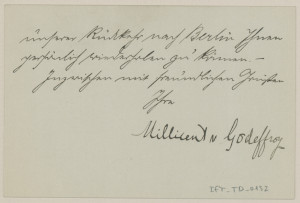 unserer Rückkehr nach Berlin Ihnen
persönlich wiederholen zu können. –
Inzwischen mit freundlichen Grüßen
Ihre
Millicent v Godeffroy